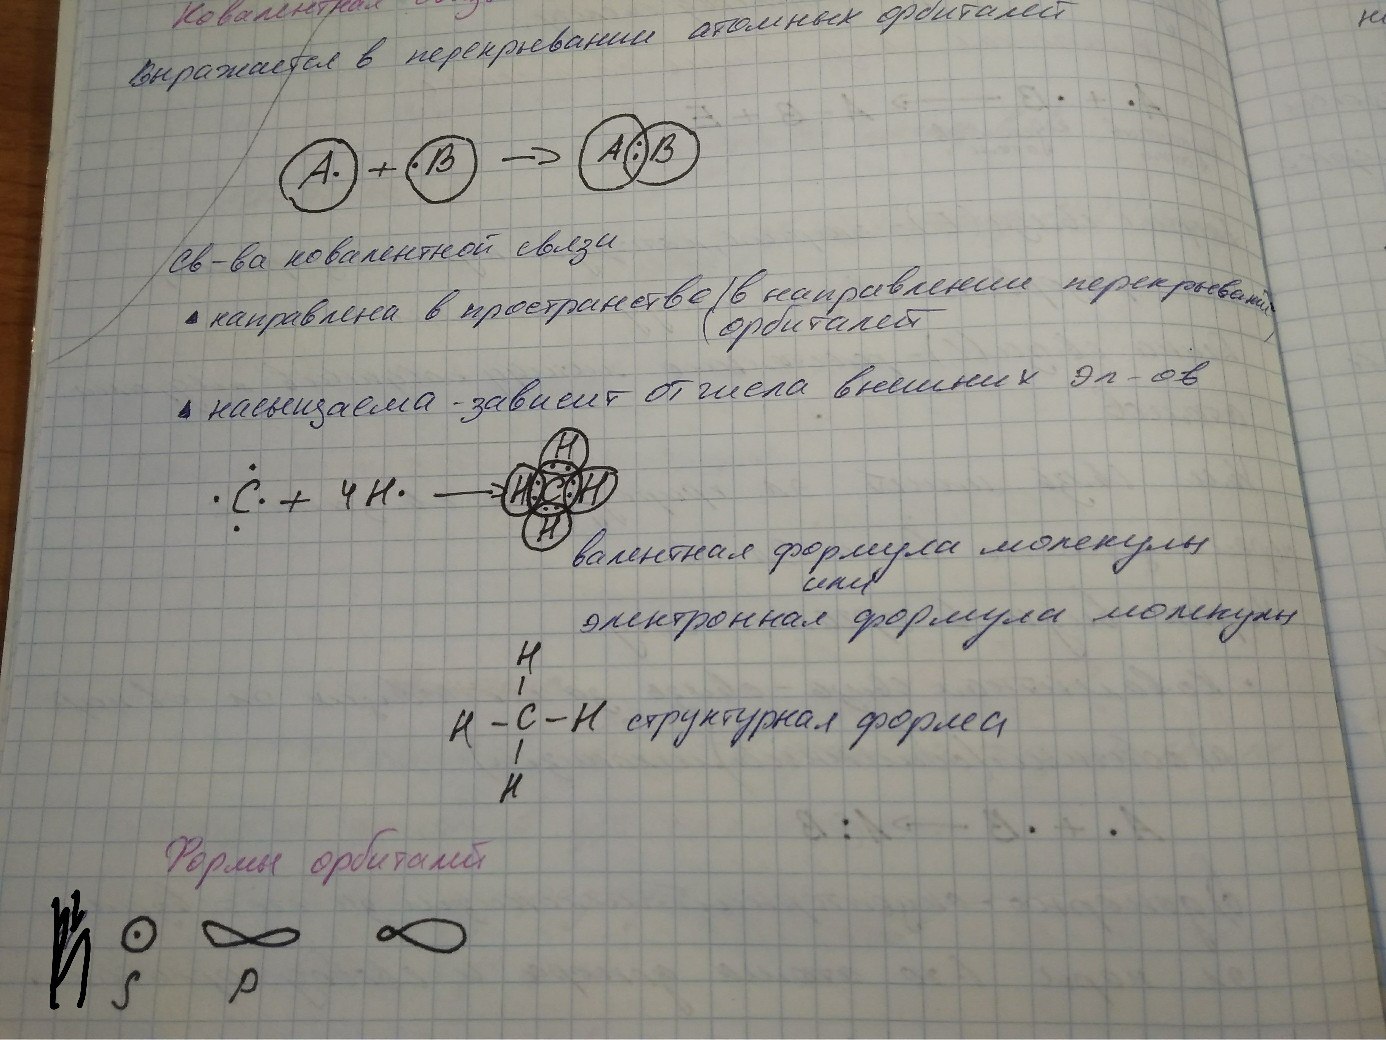 Ковалентная связь
выражается в перекрывании атомных орбиталей
A· + ·B → A:B
Св-ва ковалентной связи
направлена в пространстве (в направлении перекрывания
орбиталей)
насыщаема - зависит от числа внешних эл-ов
C + 4H· → H H C H H
валентная формула молекулы
или
электронная формула молекулы
H
H - C - H структурная форма
H
Формы орбиталей
S p